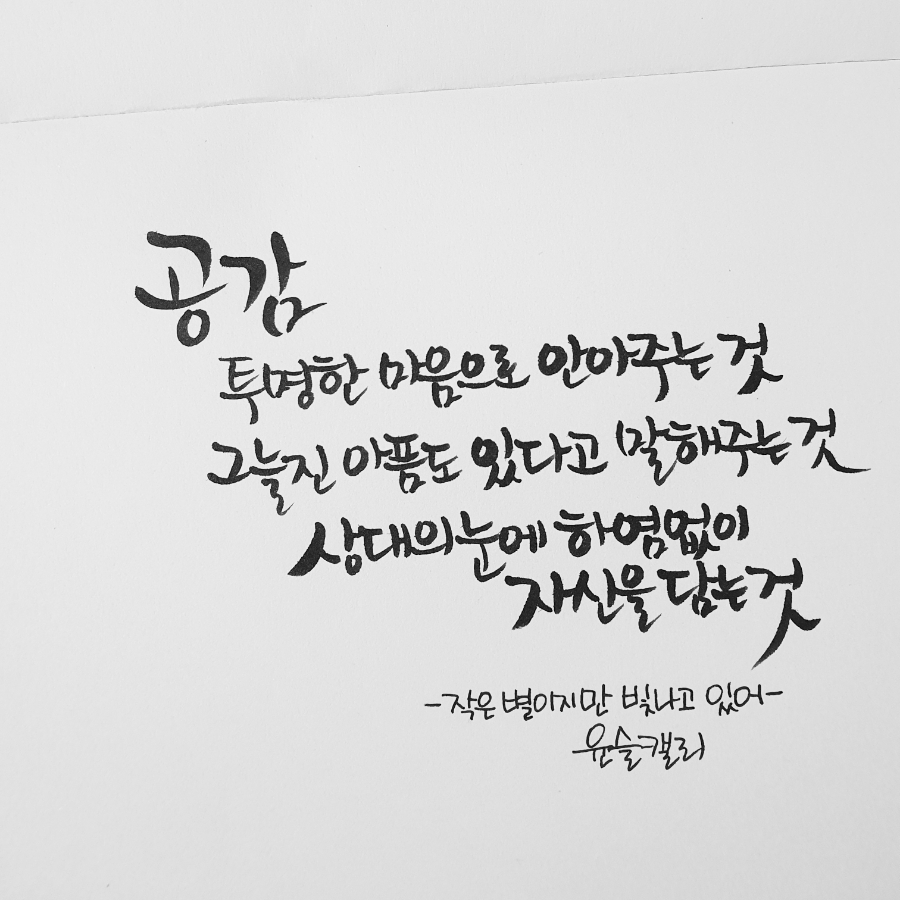 공감
투명한 마음으로 안아주는 것
그늘진 아픔도 있다고 말해주는 것
상대의 눈에 하염없이
자신을 담는 것
-작은 별이지만 빛나고 있어-
윤슬캘리